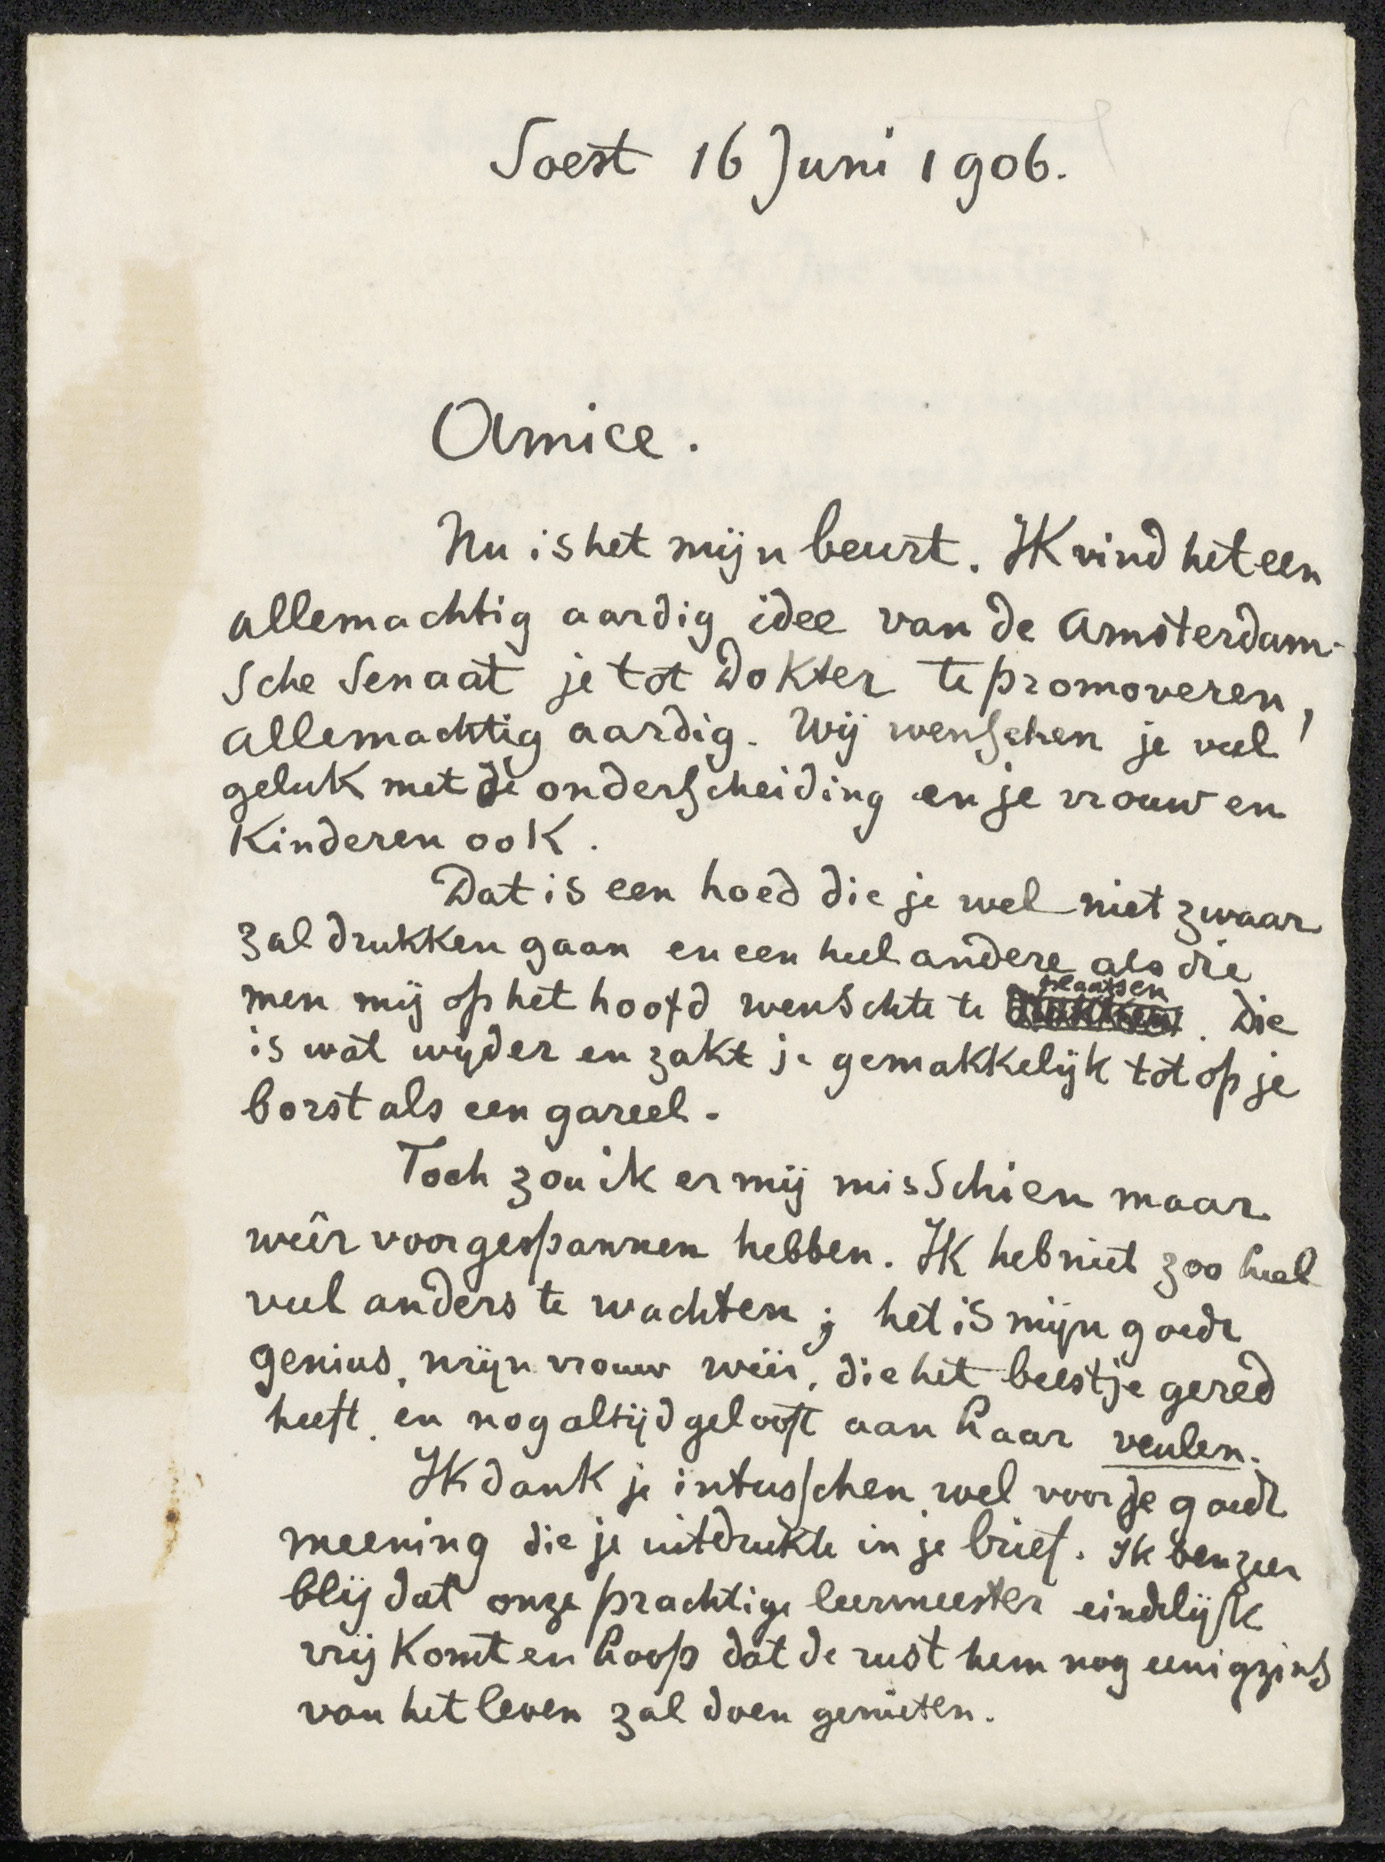 Soest 16 Juni 1906.
Amice.
Nu is het mijn beurt. Ik vind het een
allemachtig aardig idee van de Amsterdam-
sche Senaat je tot Dokter te promoveren,
allemachtig aardig. Wij wenschen je veel
geluk met de onderscheiding en je vrouw en
Kinderen ook.
Dat is een hoed die je wel niet zwaar
zal drukken gaan en een heel andere als die
men mij op het hoofd wenschte te plaatsen. Die
is wat wijder en zakt je gemakkelijk tot op je
borst als een gareel.
Toch zou ik er mij misschien maar
weêr voorgespannen hebben. Ik heb niet zoo heel
veel anders te wachten; het is mijn goede
genius, mijn vrouw weêr, die het beestje gered
heeft, en nog altijd gelooft aan haar veulen.
Ik dank je intusschen wel voor je goede
meening die je uitdrukte in je brief. Ik ben zeer
blij dat onze prachtige leermeester eindelijk
vrij Komt en hoop dat de rust hem nog eenigzins
van het leven zal doen genieten.